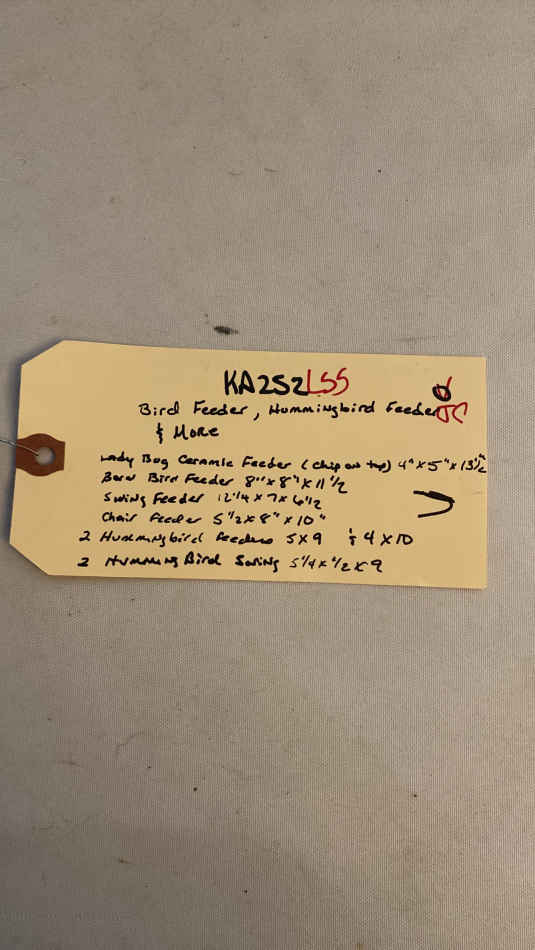 KA252LSS
Bird Feeder, Hummingbird Feeder
& More
Lady Bug Ceramic Feeder (chip on top) 4" x 5" x 13 1/2"
Bird Feeder 8" x 8" x 11 1/2
Swing Feeder 12 1/4 x 7 x 6 1/2
Chair Feeder 5 1/2 x 8" x 10"
2 Hummingbird Feeders 5 x 9 & 4 x 10
2 Humming Bird Swing 5 1/4 x 1/2 x 9